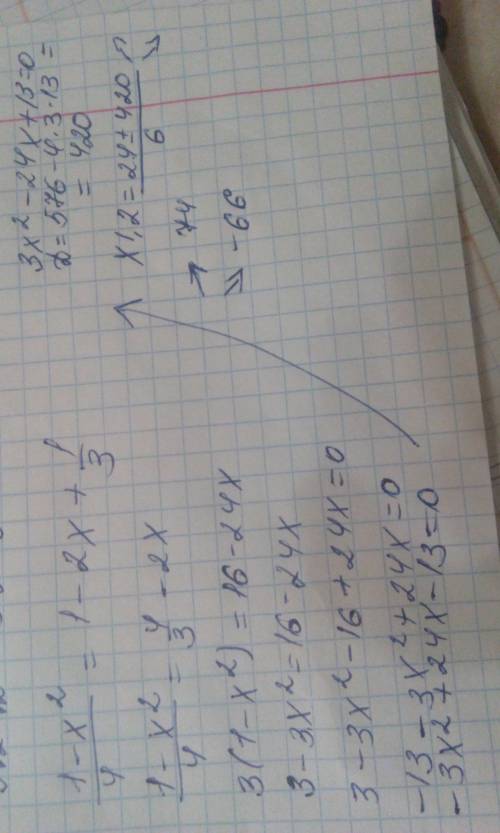 1-x²/4 = 1-2x+1/3
1-x²/4 = 4/3-2x
3(1-x²)=16-24x
3-3x²=16-24x
3-3x²-16+24x=0
-13-3x²+24x=0
-3x²+24x-13=0
3x²-24x+13=0
D=576-4·3·13=
=420
x1,2=24±420/6
74
-66